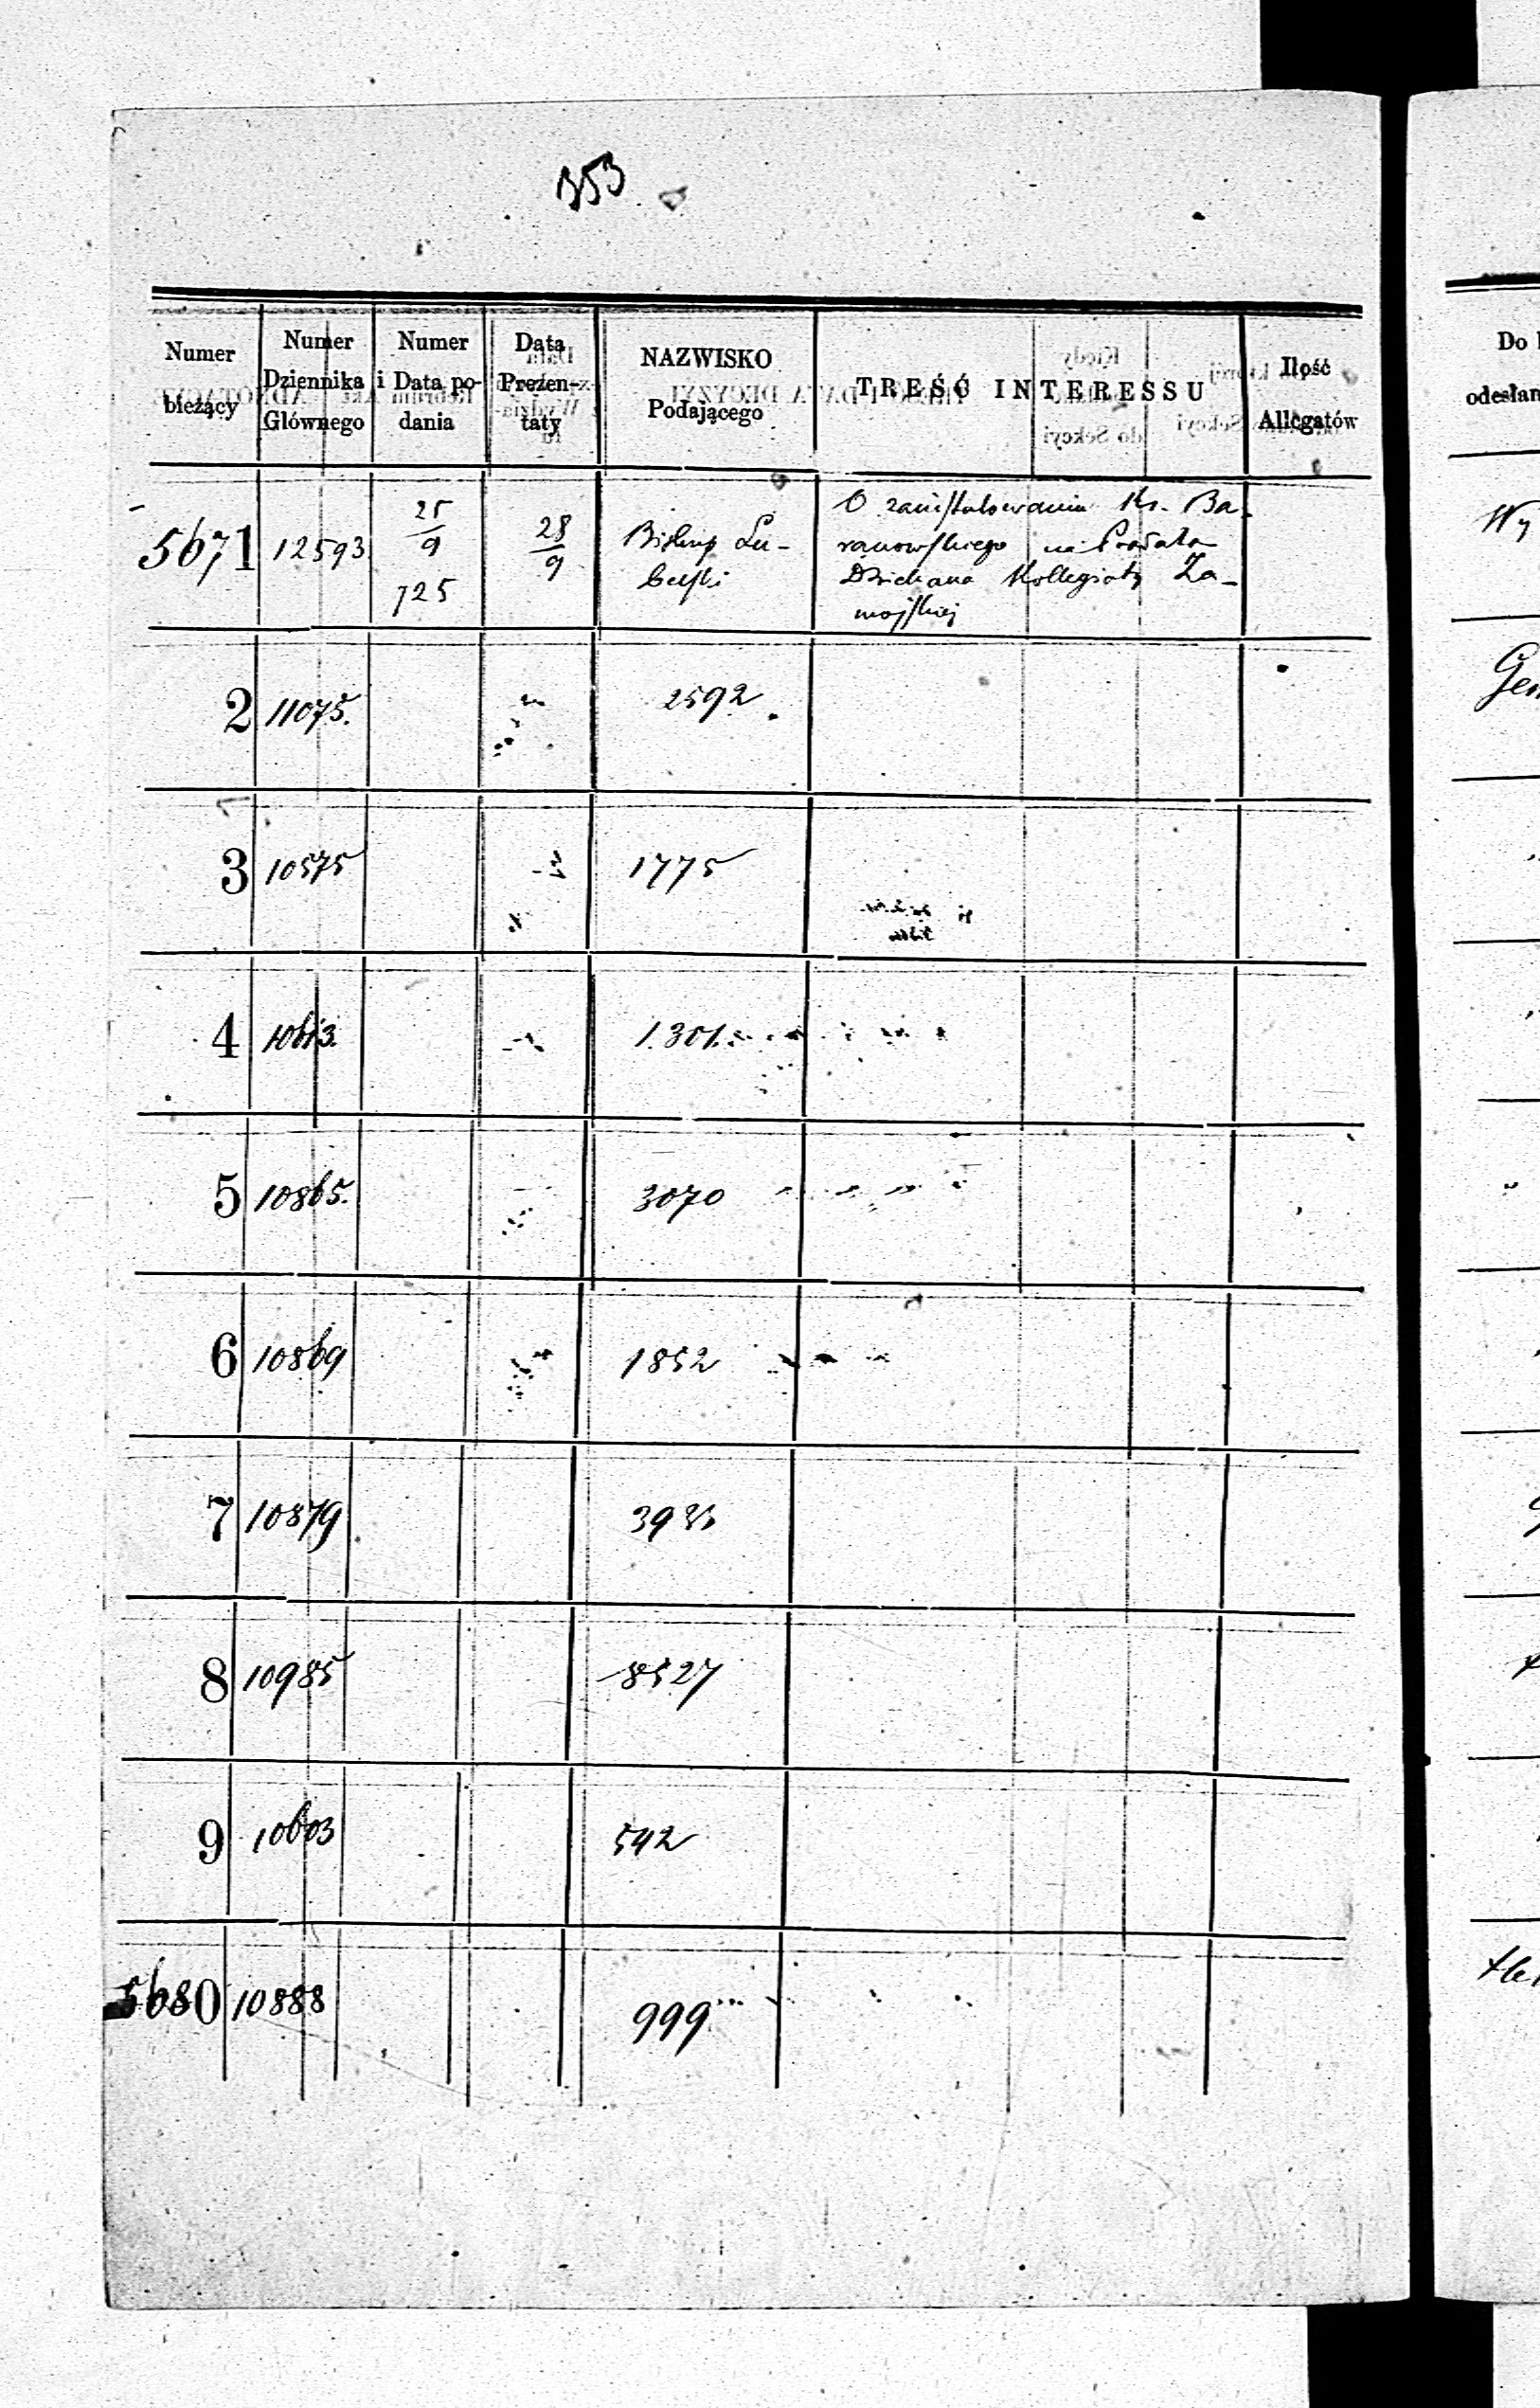 353
Numer bieżący
Numer Dziennika Głównego
Numer i Data podania
Data Prezentaty
NAZWISKO Podającego
TREŚĆ INTERESSU
Ilość Allegatów
5671 12593 25/9 725 28/9 Biskup Lubelski O zainstalowaniu Ks. Ba-
ranowskiego na Prałata
Dziekana Kollegiaty Za-
mojskiej
2 11075. 2592
3 10575 1775
4 10613. 1301.
5 10865. 3070
6 10869 1852
7 10879
8 10985 8527
9 10603 592
5680 10888 999
Do
odesłan
Wy
Gen